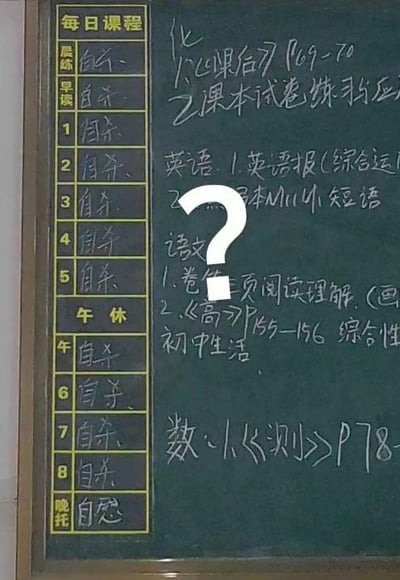 每日课程
晨练 自杀、
早读 自杀、
1 自杀、
2 自杀、
3 自杀、
4 自杀
5 自杀、
午休
午 自杀
6 自杀、
7 自杀、
8 自杀、
晚托
化
1.《课后》P69-70
2.课本试卷练习与应
英语.1.英语报(综合运
2. 本M11U1短语
?
语文
1.卷 三页阅读理解.(画
2.《高》P155-156 综合性
初中生活
数:1.《测》P78-